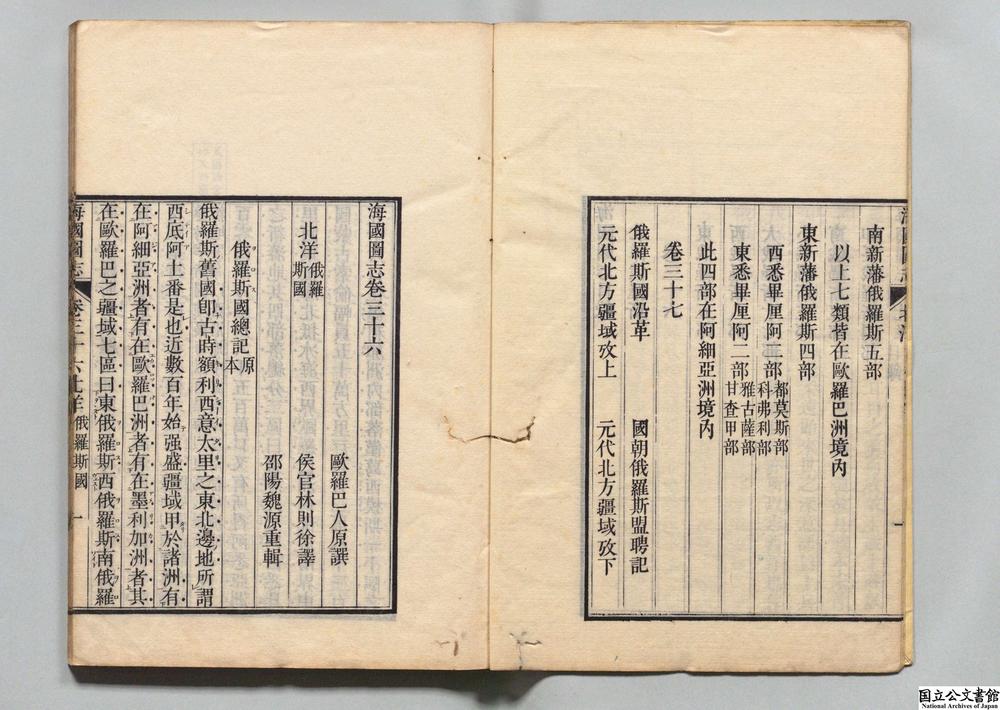 南新藩俄羅斯五部
以上七類皆在歐羅巴洲境內
東新藩俄羅斯四部
西悉畢厘阿二部都莫斯部科弗利部
東悉畢厘阿二部雅古薩部甘查甲部
此四部在阿細亞洲境內
卷三十七
俄羅斯國沿革 國朝俄羅斯盟聘記
元代北方疆域攷上 元代北方疆域攷下
海國圖志卷三十六
歐羅巴人原譔
北洋俄羅斯國 侯官林則徐譯
邵陽魏源重輯
俄羅斯國總記原本
俄羅斯舊國卽古時額利西意大里之東北邊地所謂
西底阿土番是也近數百年始强盛疆域甲於諸洲有
在阿細亞洲者有在歐羅巴洲者有在墨利加洲者其
在歐羅巴之疆域七區曰東俄羅斯西俄羅斯南俄羅
海國圖志 卷三十六 北洋 俄羅斯國 一
国立公文書館
National Archives of Japan